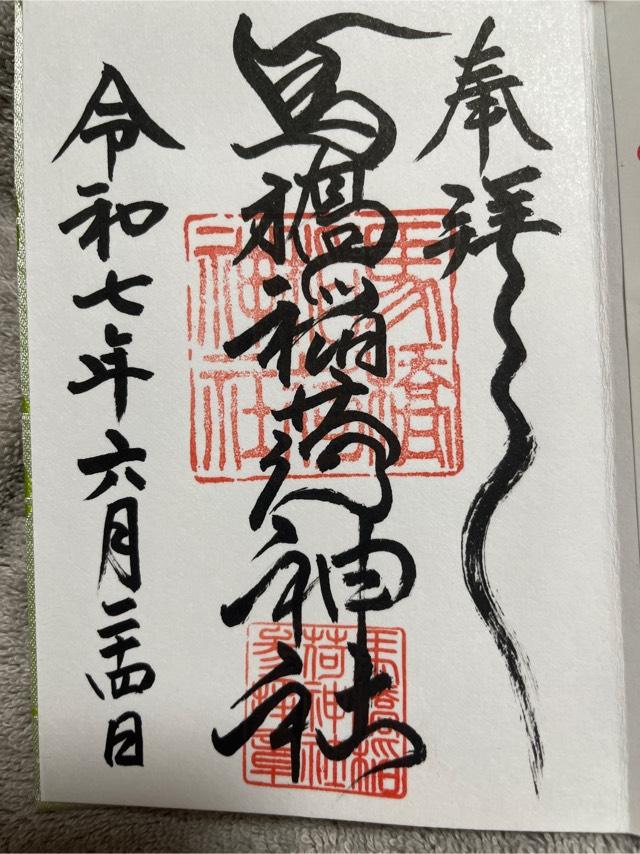 奉拝
馬橋稲荷神社
令和七年六月二十四日
馬橋
稲荷
神社
馬橋稲
荷神社
参拝章